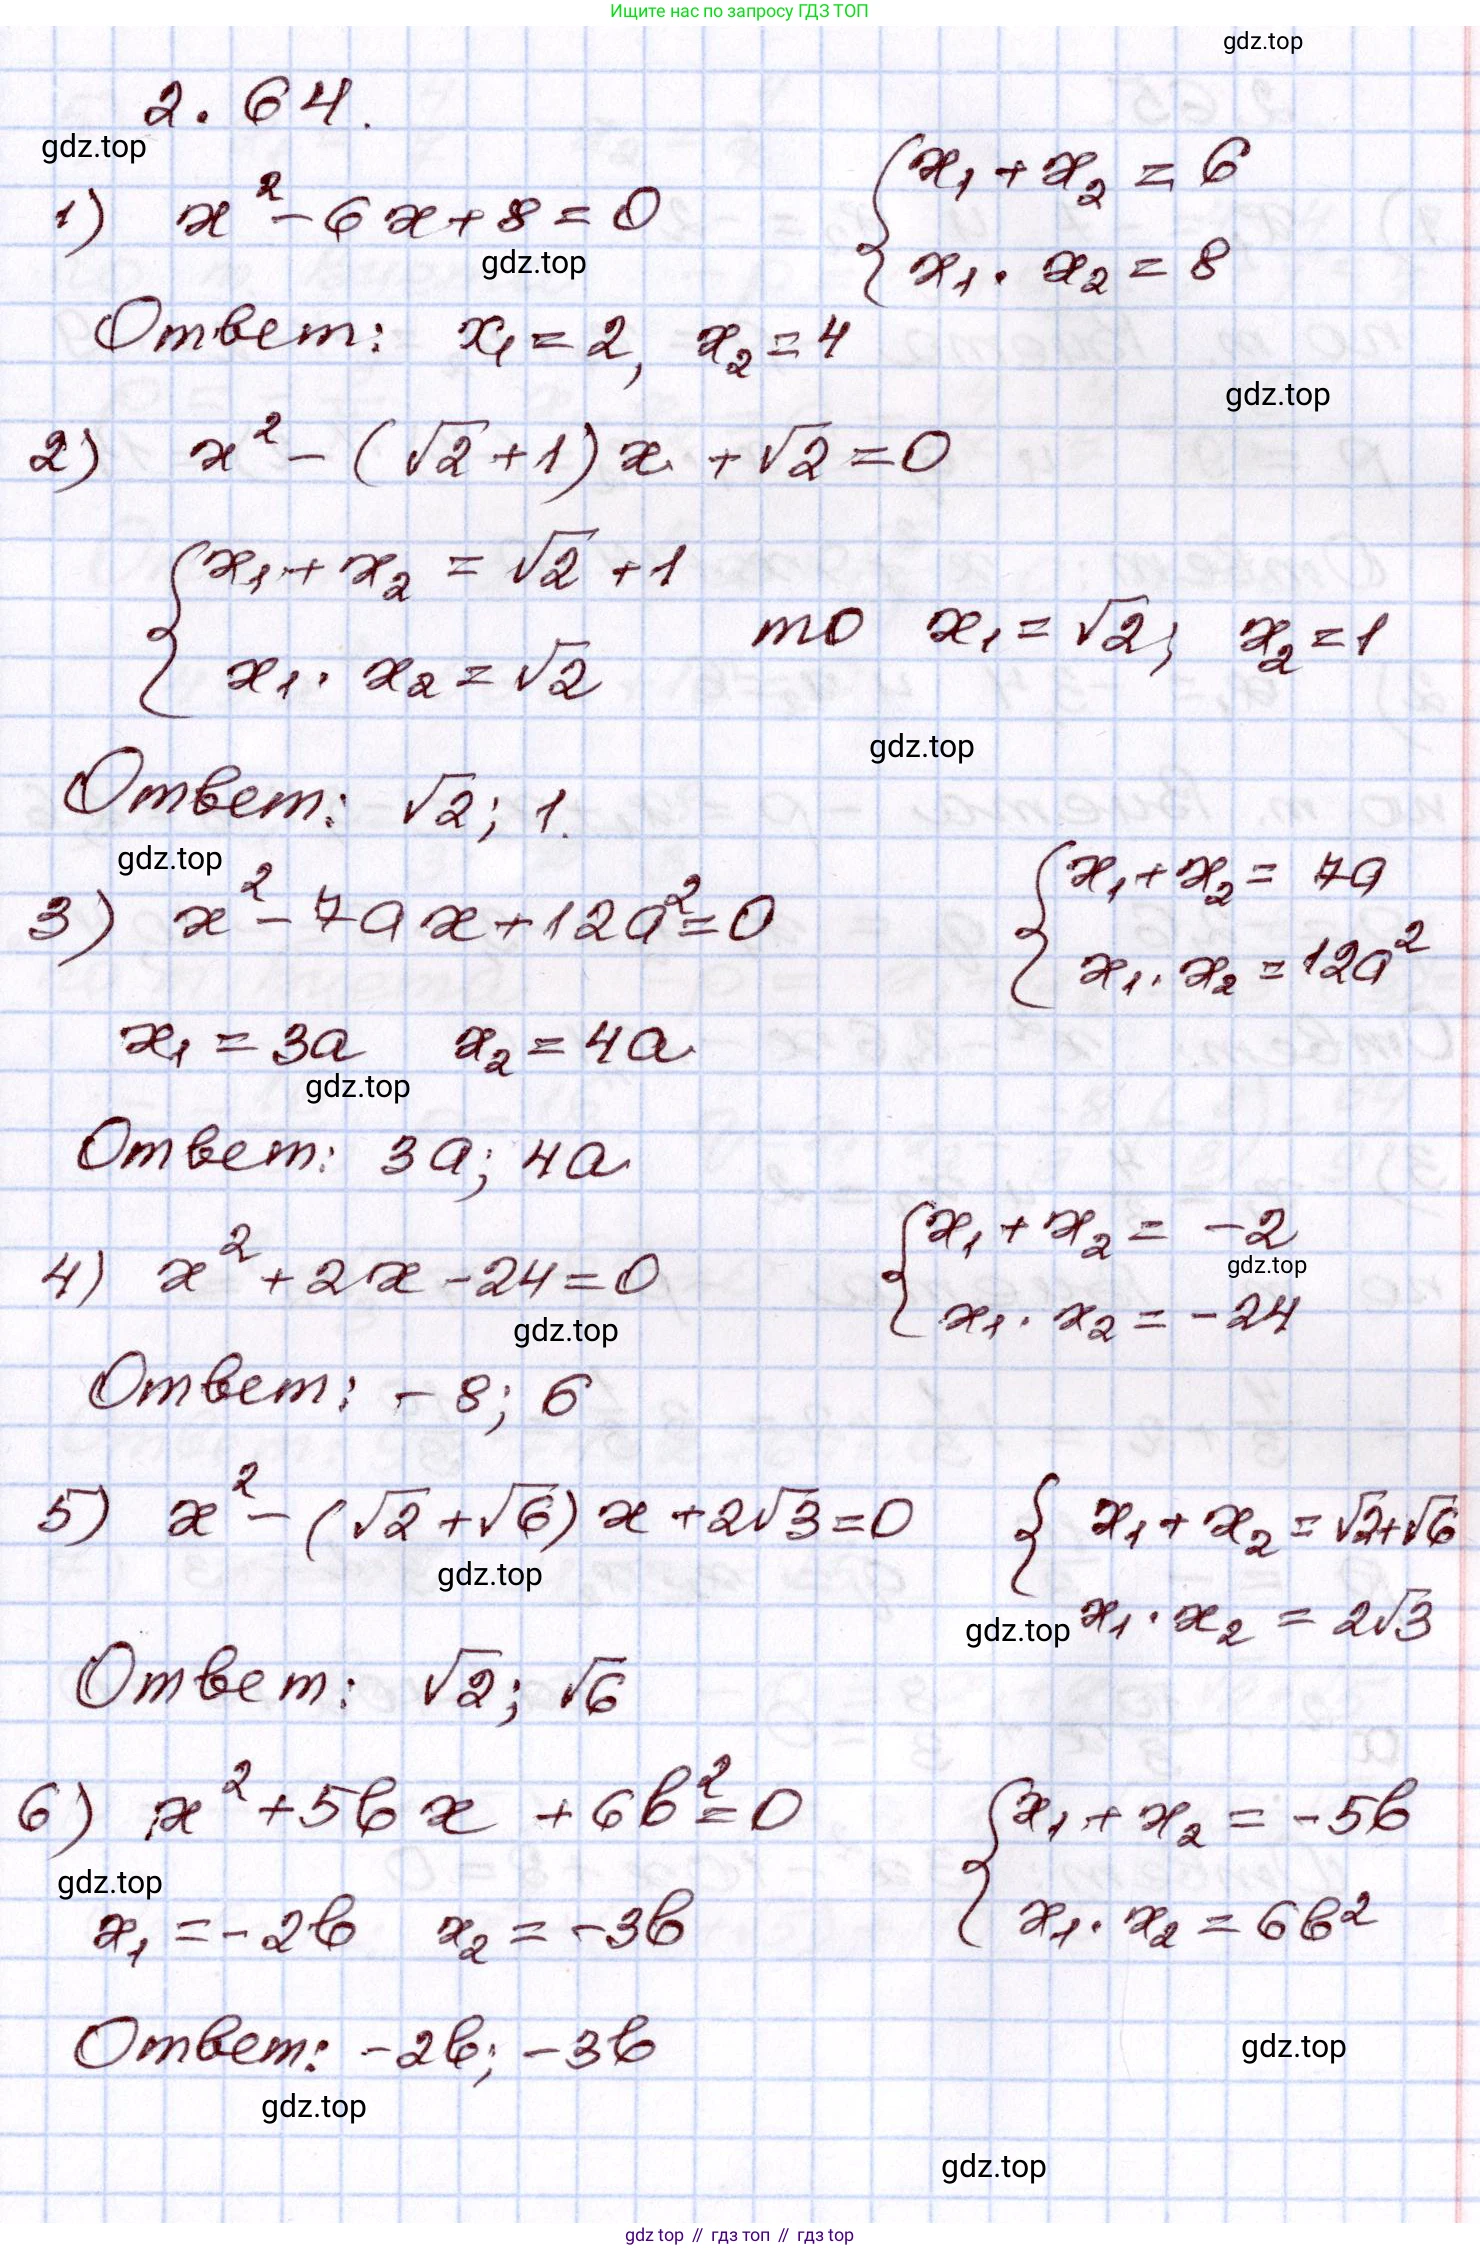 Ищите нас по запросу ГДЗ ТОП
gdz.top
2.64.
gdz.top
1) x² - 6x + 8 = 0
{ x₁ + x₂ = 6
x₁ · x₂ = 8
gdz.top
Ответ: x₁ = 2, x₂ = 4
gdz.top
2) x² - (√2 + 1)x + √2 = 0
{ x₁ + x₂ = √2 + 1
x₁ · x₂ = √2
то x₁ = √2; x₂ = 1
gdz.top
Ответ: √2; 1.
gdz.top
3) x² - 7ax + 12a² = 0
{ x₁ + x₂ = 7a
x₁ · x₂ = 12a²
x₁ = 3a x₂ = 4a
gdz.top
Ответ: 3a; 4a
4) x² + 2x - 24 = 0
{ x₁ + x₂ = -2
gdz.top
x₁ · x₂ = -24
gdz.top
Ответ: -8; 6
5) x² - (√2 + √6)x + 2√3 = 0
{ x₁ + x₂ = √2 + √6
gdz.top
gdz.top
x₁ · x₂ = 2√3
Ответ: √2; √6
6) x² + 5bx + 6b² = 0
{ x₁ + x₂ = -5b
x₁ · x₂ = 6b²
gdz.top
x₁ = -2b x₂ = -3b
Ответ: -2b; -3b
gdz.top
gdz.top
gdz.top
gdz top // гдз топ // gdz top